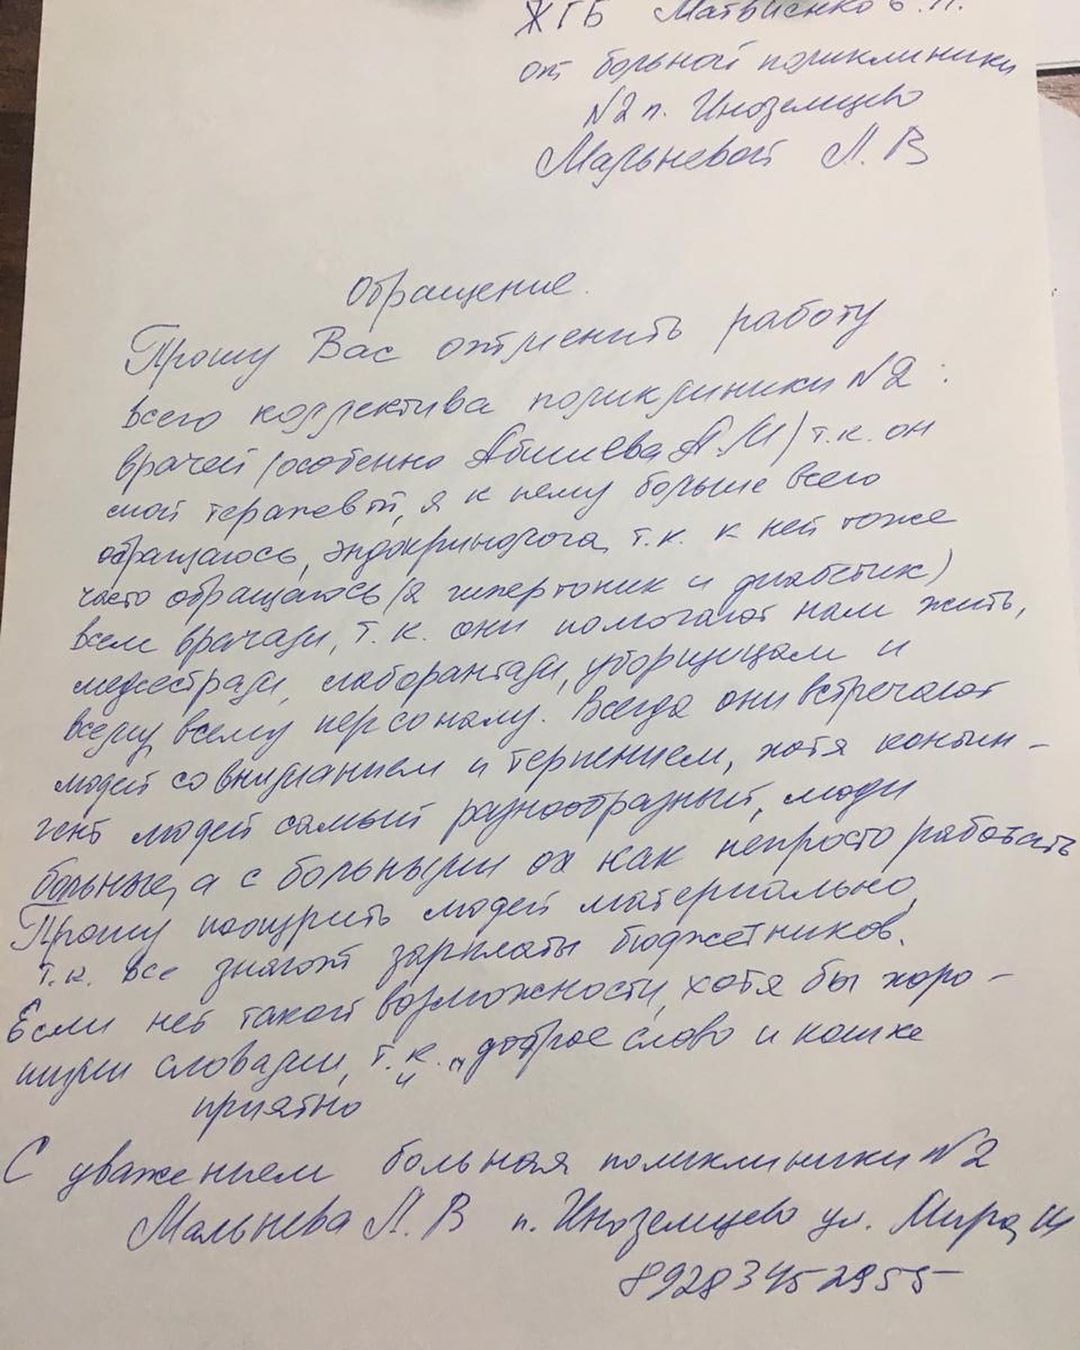 ЖГБ Матвиенко В. П.
от больной поликлиники
N2 п. Иноземцево
Мальневой Л. В
Обращение.
Прошу Вас отметить работу
всего коллектива поликлиники N2:
врачей (особенно А.И) т.к. он
мой терапевт, я к нему больше всего
обращаюсь, эндокринолога, т.к. к ней тоже
часто обращаюсь (я гипертоник и диабетик)
всем врачам, т.к. они помогают нам жить,
медсестрам, лаборантам, уборщицам и
всему, всему персоналу. Всегда они встречают
людей со вниманием и терпением, хотя контин-
гент людей самый разнообразный, люди
больные, а с больными ох как непросто работать
Прошу поощрить людей материально,
т.к. все знают зарплаты бюджетников.
Если нет такой возможности, хотя бы хоро-
шими словами, т.к. „доброе слово и кошке
приятно"
С уважением больная поликлиники N2
Мальнева Л. В п. Иноземцево ул. Мира,
89283452955